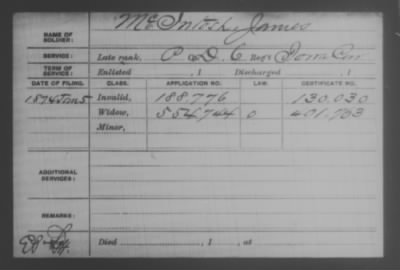 NAME OF SOLDIER: McIntosh, James
SERVICE: Late rank, P Co. D, 6 Reg't Iowa Cav
TERM OF SERVICE: Enlisted , 1 Discharged , 1
DATE OF FILING. CLASS. APPLICATION NO. LAW. CERTIFICATE NO.
1874 Jan 5 Invalid, 188.776 130.030
Widow, 554.744 0 401.763
Minor,
ADDITIONAL SERVICES:
REMARKS:
Died , 1 , at